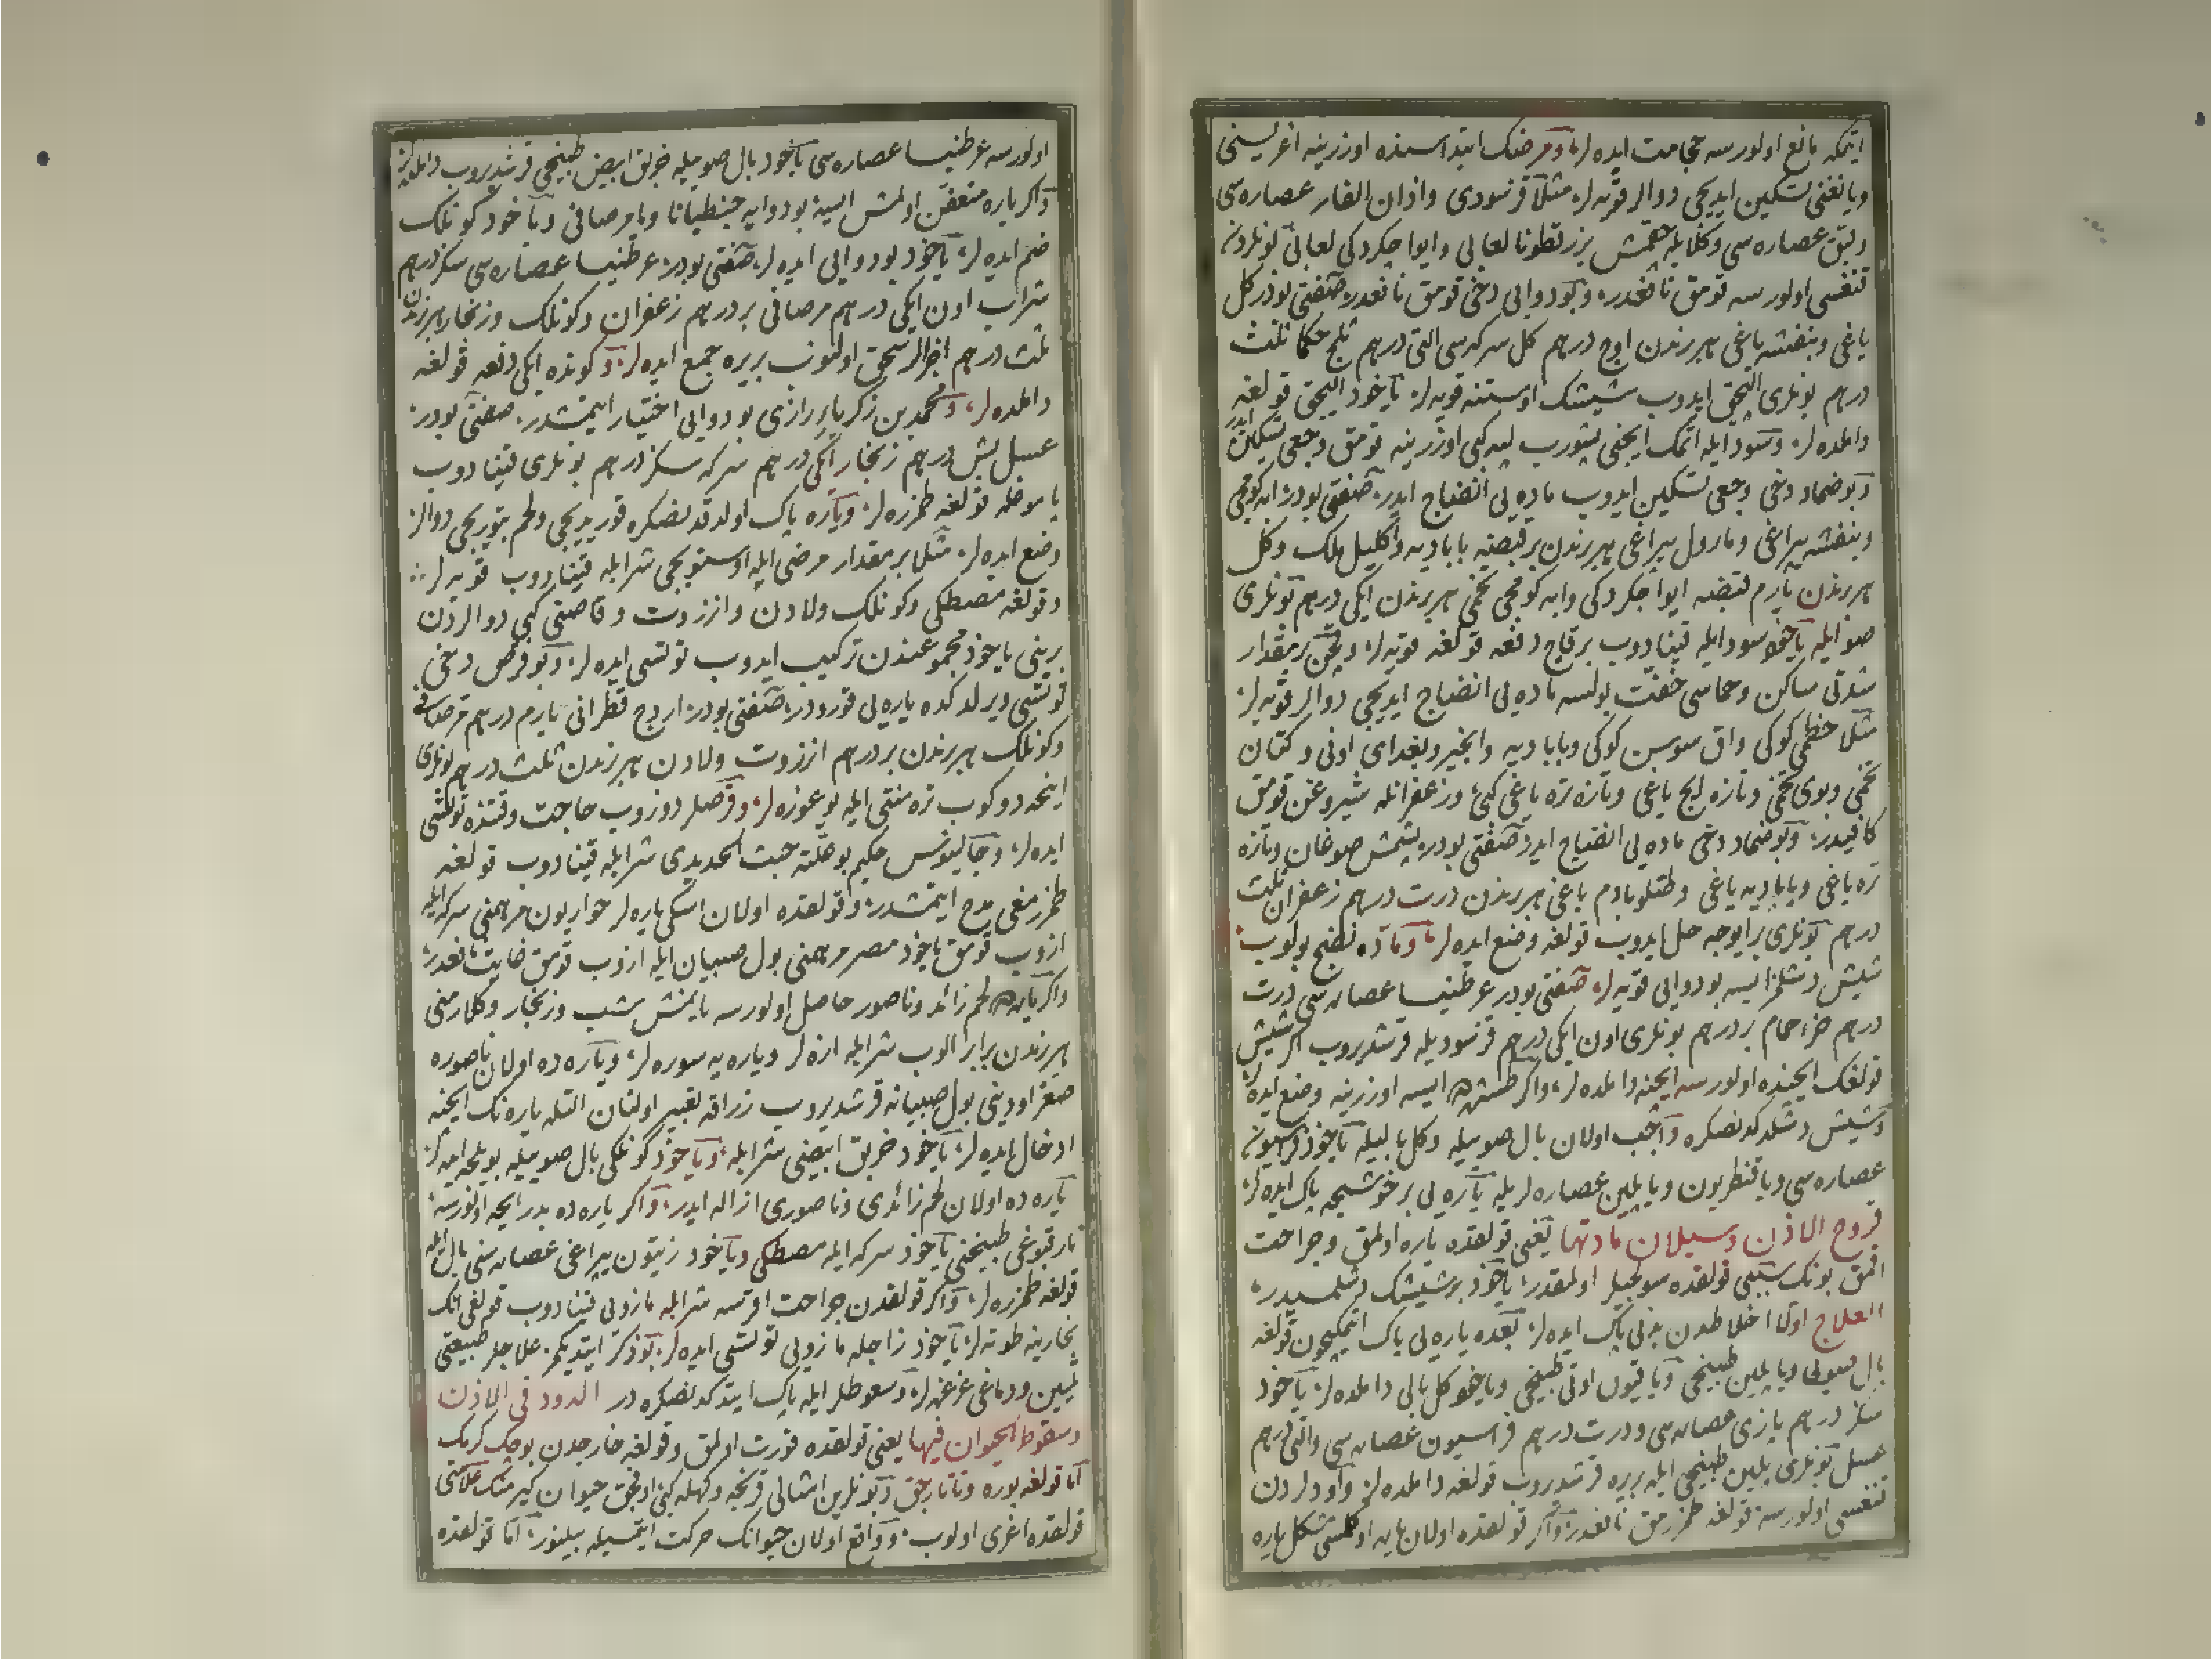 ایتمکه مانع اولورسه حجامت ایده لر و مرضک ابتداسنده اوزرینه اغریسنی
ویانغنی تسکین ایدیجی دوالر قویه لر مثلا قرنسودی واذان الفار عصاره سی
وبنق عصاره سی وکلابله چقمش بزرقطونا لعابی وایوا چکردکی لعابی بونلردن
قنغسی اولورسه قومق نافعدر وبو دوایی دخی قومق نافعدر صفتی بودر کل
یاغی وبنفشه یاغی هر برندن اوچ درهم کل سرکه سی التی درهم ثلج حکاک ثلث
درهم بونلری الیجق ایدوب شیشک اوستنه قویه لر یاخود الیجق قولغه
دامله لر وسود ایله اتمک ایچنی پشورب لپه کبی اوزرینه قومق وجعی تسکین ایدر
وبو ضماد دخی وجعی تسکین ایدوب ماده یی انضاج ایدر صفتی بودر ابه کومجی
وبنفشه یپراغی ومارول یپراغی هر برندن بر قبضه بابادیه واکلیل ملک وکل
هر برندن یارم قبضه ایوا چکردکی وابه کومجی تخمی هر برندن ایکی درهم بونلری
صو ایله یاخود سود ایله قینادوب بر قاچ دفعه قولغه قویه لر وقچن بر مقدار
شدتی ساکن وحماسی خفت بولسه ماده یی انضاج ایدیجی دوالر قویه لر
مثلا خطمی کوکی واق سوسن کوکی وبابادیه وانجیر وبغدای اونی وکتان
تخمی وبوی تخمی وتازه ایچ یاغی وتازه تره یاغی کبی وزعفرانله شیروغن قومق
کافیدر وبو ضماد دخی ماده یی انضاج ایدر صفتی بودر پشمش صوغان وتازه
تره یاغی وبابادیه یاغی وطتلو بادم یاغی هر برندن درت درهم زعفران ثلث
درهم بونلری برایوجه حل ایدوب قولغه وضع ایده لر وماده نضج بولوب
شیش دشلنر ایسه بو دوایی قویه لر صفتی بودر عرطنیسا عصاره سی درت
درهم خام بر درهم بونلری اون ایکی درهم قرنسودیله قرشدیروب اکر شیش
قولغک ایچنده اولورسه ایچنه دامله لر واکر طشره ایسه اوزرینه وضع ایده لر
وشیش دشلدکدنصکره واجب اولان بال صوییله وکل بالیله یاخود فراسیون
عصاره سی ویا قنطریون ویا پلین عصاره لریله یاره یی برخوشجه پاک ایده لر
قروح الاذن وسیلان مادتها یعنی قولقده یاره اولمق وجراحت
اقمق بونک سببی قولقده سولجیلر اولمقدر یاخود بر شیشک دشلمسیدر
العلاج اولا اخلاطدن بدنی پاک ایده لر بعده یاره یی پاک ایتمکچون قولغه
بال صویی ویا پلین طبیخی ویا قیون اوتی طبیخی ویاخود کل بالی دامله لر یاخود
سکز درهم یازی عصاره سی ودرت درهم فراسیون عصاره سی والتی درهم
عسل بونلری پلین طبیخی ایله بریره قرشدروب قولغه دامله لر واودلردن
قنغسی اولورسه قولغه طمزرمق نافعدر واکر قولقده اولان یاره اوکلمسی مشکل یاره
اولورسه عرطنیسا عصاره سی یاخود بال صوییله خربق ابیض طبیخی قرشدیروب دامله لر
واکر یاره متعفن اولمش ایسه بو دوایه جنطیانا ویا مرصافی ویاخود کونلک
ضم ایده لر یاخود بو دوایی ایده لر صفتی بودر عرطنیسا عصاره سی سکز درهم
شراب اون ایکی درهم مرصافی بر درهم زعفران وکونلک وزنجار هر برندن
ثلث درهم اجزالر سحق اولنوب بریره جمع ایده لر وکونده ایکی دفعه قولغه
دامله لر ومحمد بن زکریا رازی بو دوایی اختیار ایتمشدر صفتی بودر
عسل بش درهم زنجار ایکی درهم سرکه سکز درهم بونلری قینادوب
یاره قولغه طمزره لر ویاره پاک اولدقدنصکره قوریدیجی ولحم بتوریجی دوالر
وضع ایده لر مثلا بر مقدار مرضی ایله اوستوبجی شرابله قینادوب قویه لر
وقولغه مصطکی وکونلک ولادن وانزروت وقاصنی کبی دوالردن
برینی یاخود مجموعندن ترکیب ایدوب توتسی ایده لر وبو قرص دخی
توتسی ویرلدکده یاره یی قورودر صفتی بودر اردج قطرانی یارم درهم مرصافی
وکونلک هر برندن بر درهم انزروت ولادن هر برندن ثلث درهم بونلری
اینجه دوکوب تره منتی ایله یوغوره لر وقرصلر دوزوب حاجت وقتنده توتسی
ایده لر وجالینوس حکیم بو علته خبث الحدیدی شرابله قینادوب قولغه
طمزرمغی مدح ایتمشدر وقولقده اولان اسکی یاره لر حواریون مرهمنی سرکه ایله
ازوب قومق یاخود مصر مرهمنی بول صبیان ایله ازوب قومق غایت نافعدر
واکر یاره ده لحم زائد وناصور حاصل اولورسه یانمش شب وزنجار وکلارمنی
هر برندن برابر الوب شرابله ازه لر ویاره یه سوره لر ویاره ده اولان ناصوره
صغر اودینی بول صبیانه قرشدیروب زراقه تعبیر اولنان التله یاره نک ایچنه
ادخال ایده لر یاخود خربق ابیضی شرابله ویاخود کونلکی بال صوییله بویله ایده لر
یاره ده اولان لحم زائدی وناصوری ازاله ایدر واکر یاره ده بد رایحه اولورسه
نار قبوغی طبیخنی یاخود سرکه ایله مصطکی ویاخود زیتون یپراغی عصاره سنی بال ایله
قولغه طمزره لر واکر قولقدن جراحت اقرسه شرابله مازویی قینادوب قولغی انک
بخارینه طوته لر یاخود زاجله مازویی توتسی ایده لر بو ذکر ایتدیکمز علاجلر طبیعتی
تلیین ودماغی غرغره لر وسعوطلر ایله پاک ایتدکدنصکره در الدود فی الاذن
وسقوط الحیوان فیها یعنی قولقده قورت اولمق وقولغه خارجدن بوجک کرمک
اما قولغه بوره وتاتارجق وبونلرین امثالی قرنجه وکهله کبی اوفجق حیوان کیرمنک علامتی
قولقده اغری اولوب وواقع اولان حیوانک حرکت ایتمسیله بیلنور اما قولقده